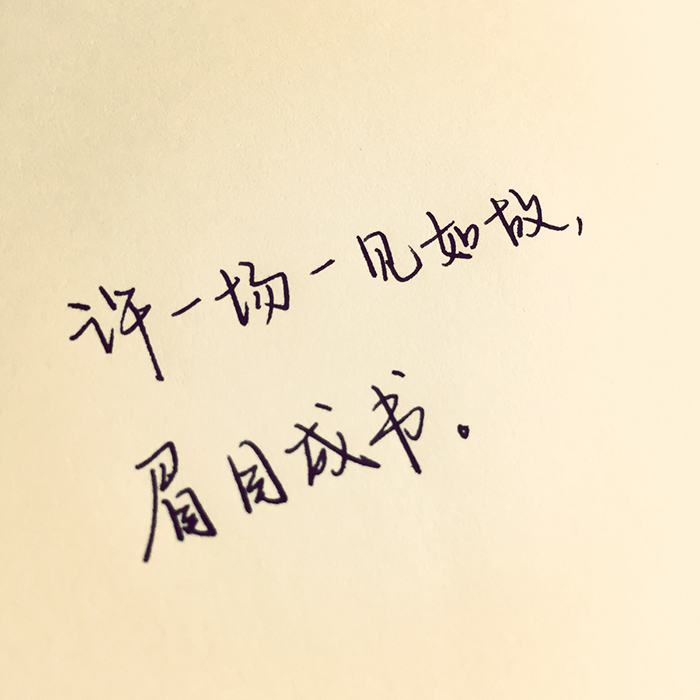 许一场一见如故,
眉目成书.